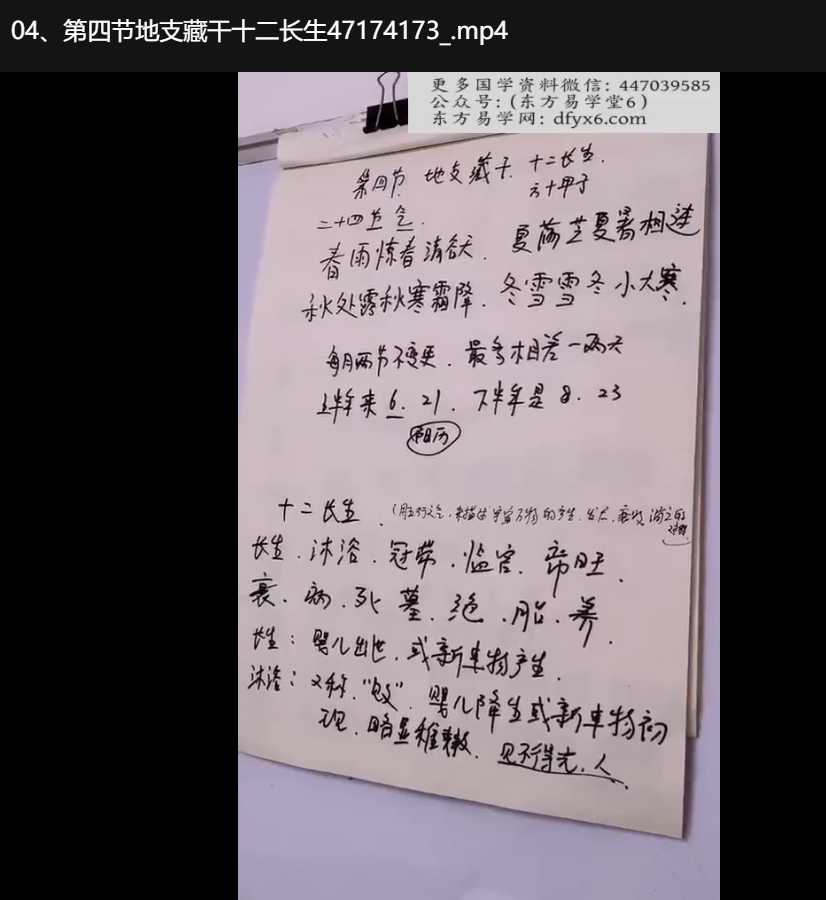 04、第四节地支藏干十二长生47174173_.mp4
更多国学资料微信: 447039585
公众号:(东方易学堂6)
东方易学网: dfyx6.com
第四节 地支藏干. 十二长生.
六十甲子
二十四节气.
春雨惊春清谷天. 夏满芒夏暑相连
秋处露秋寒霜降. 冬雪雪冬小大寒.
每月两节不变更. 最多相差一两天
上半年来6. 21. 下半年是8. 23
阳历
十二长生.
长生. 沐浴. 冠带. 临官. 帝旺.
衰. 病. 死. 墓. 绝. 胎. 养.
长生: 婴儿出世. 或新事物产生.
沐浴: 又称. "败". 婴儿降生或新事物初
现. 略显稚嫩. 见不得光. 人